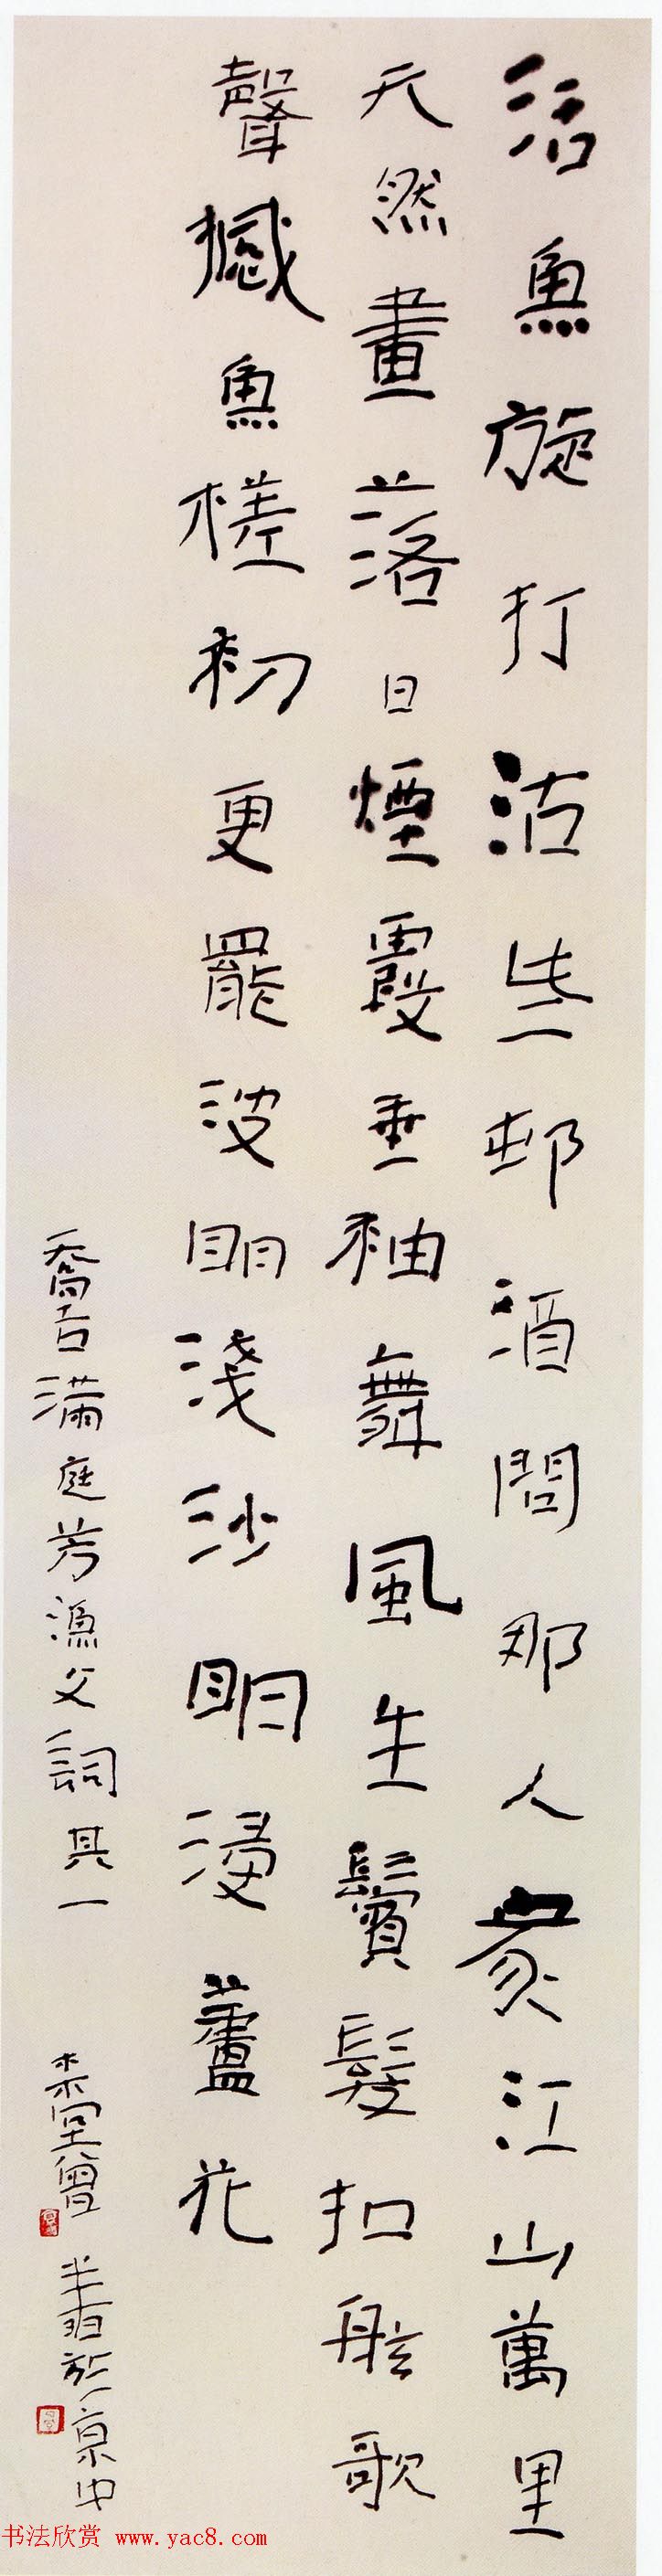 活魚旋打沽些邨酒問那人家江山萬里
天然畫落日煙霞垂袖舞風生鬢髮扣舷歌
聲撼魚槎初更罷波眀淺沙眀浸蘆花
喬吉滿庭芳漁父詞其一 堂曾 書於京中
书法欣赏 www.yac8.com